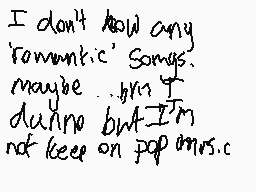 I don't know any
'romantic' songs.
maybe ... hm I
dunno but I'm
not keen on pop music